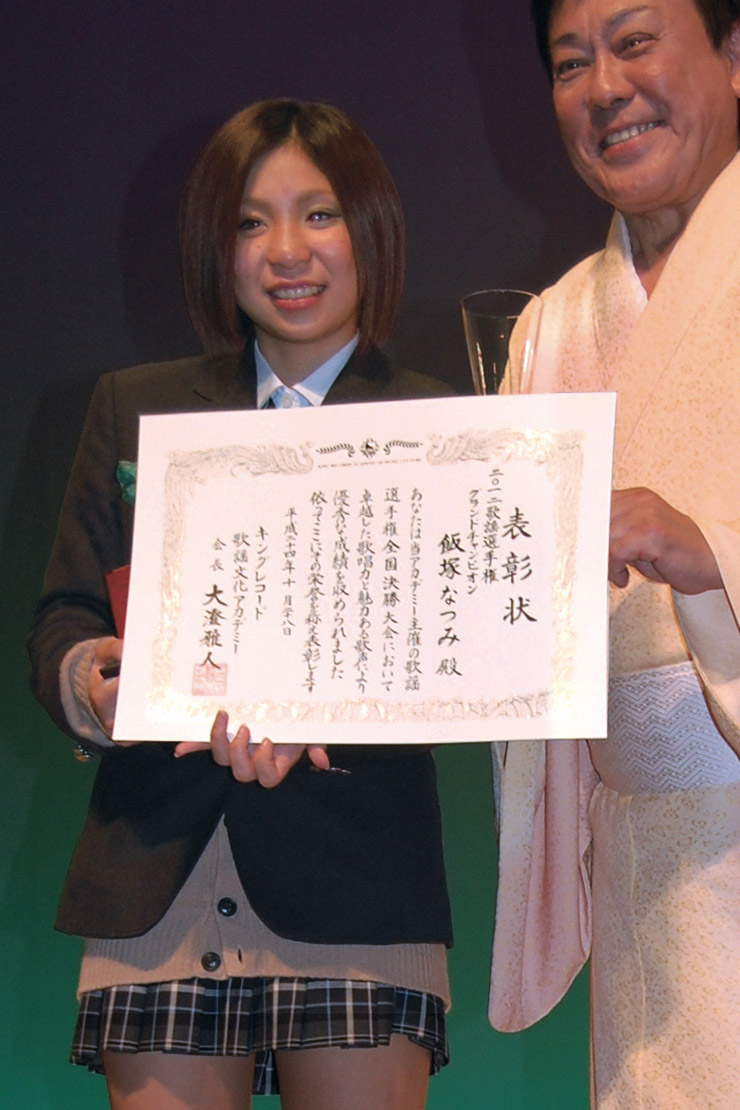 表彰状
二〇一二歌謡選手権
グランドチャンピオン
飯塚なつみ 殿
あなたは当アカデミー主催の歌謡
選手権全国決勝大会において
卓越した歌唱力と魅力ある歌声により
優秀な成績を収められました
依ってここにその栄誉を称え表彰します
平成二十四年十月廿八日
キングレコード
歌謡文化アカデミー
会長 大澄雅人